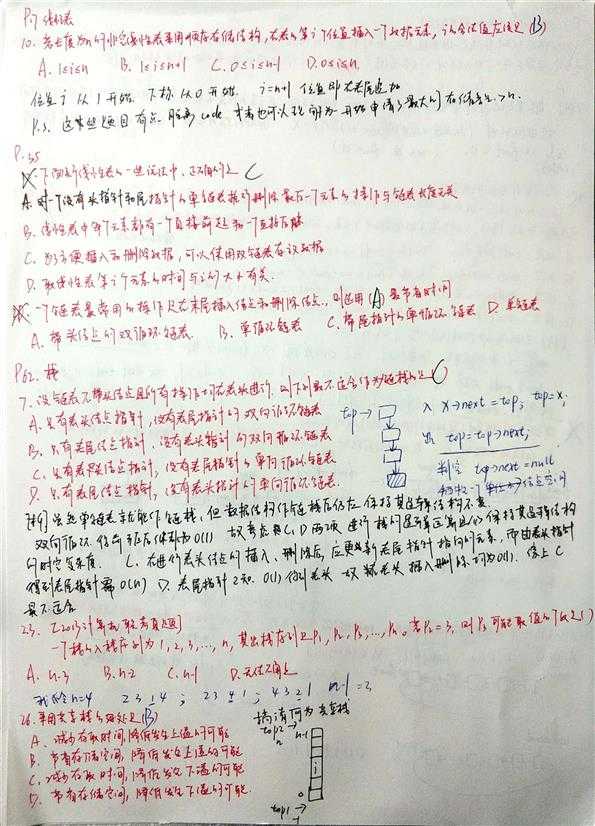 P17 线性表
10. 若长度为n的非空线性表采用顺序存储结构,在表的第i个位置插入一个数据元素,i的合法值应该是 (B)
A. 1≤i≤n B. 1≤i≤n+1 C. 0≤i≤n-1 D. 0≤i≤n
位置i从1开始,下标从0开始. i=n+1 位置即在表尾追加
P.s. 这某些题目有点脱离code,
P.35
下面关于线性表的一些说法中,正确的是 C
A. 对一个没有头指针和尾指针的单链表执行删除最后一个元素的操作与链表长度无关
B. 线性表中每个元素都有一个直接前趋和一个直接后继
C. 为了方便插入和删除数据,可以使用双链表存放数据
D. 取线性表第i个元素的时间与i的大小有关.
一个链表最常用的操作是在末尾插入结点和删除结点,则选用(A)最节省时间
A. 带头结点的双循环链表 B. 单循环链表 C. 带尾指针的单循环链表 D. 单链表
P62. 栈
7. 设链表不带头结点且所有操作均在表头进行,则下列最不适合作为链栈的是 C
A. 只有表头结点指针,没有表尾指针的双向循环链表
B. 只有表尾结点指针,没有表头指针的双向循环链表
C. 只有表头结点指针,没有表尾指针的单向循环链表
D. 只有表尾结点指针,没有表头指针的单向循环链表.
top→
入 x→next = top; top = x;
出 top = top→next;
判空 top→next = null
结点空间
[解] 虽然单链表就能作链栈,但数据结构作链栈后仍应保持其逻辑结构不变
双向循环 保持为O(1) 故考虑C、D两项 进行栈的 保持其逻辑结构
的时空复杂度. C. 在进行表头结点的插入、删除后,应更新表尾指针指向的元素,而由表头指针
得到表尾指针需O(n) D. 表尾指针已知. O(1)得到表头 故 表头插入删除均为O(1). 综上C
最不适合
23. [2013计算机联考真题]
一个栈的入栈序列为1,2,3,…,n,其出栈序列是P1,P2,P3,…,Pn。若P2=3,则P3可能取值的个数是(C)
A. n-3 B. n-2 C. n-1 D. 无法确定
n=4 2 3 1 4 ; 2 3 4 1 ; 4 3 2 1 n-1=3
26. 采用共享栈的好处是 (B)
A. 减少存取时间,降低发生上溢的可能
B. 节省存储空间,降低发生上溢的可能
C. 减少存取时间,降低发生下溢的可能
D. 节省存储空间,降低发生下溢的可能.
搞清何为共享栈
top2→
n
n-1
i
0
top1→
-1